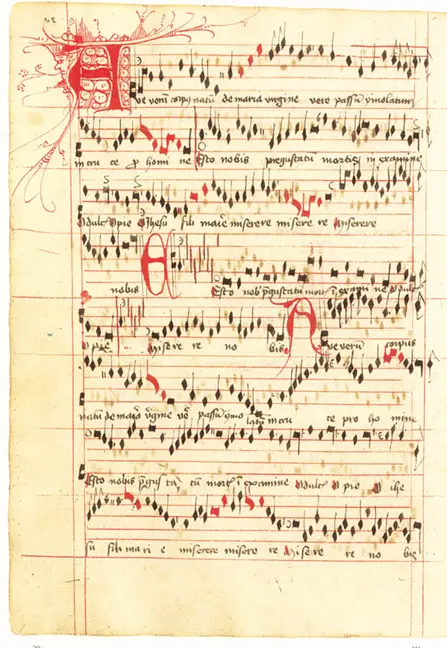 Ave verū corpꝯ natū de maria virgine vere passū ymolatum
in cru ce p̱ homi ne Esto nobis pregustatū mortis in examine
O dulcꝭ O pie O ihesu fili marie miserere misere re Miserere
nobis Esto nob̾ p̄gustatū mortꝭ ī exami ne O dulcꝭ
O pie Misere re no bis Ave verū corpus
natū de maria v̾gine ve passū ymo latū in cru ce pro ho mine
Esto nobis p̄gus ta tū mortꝭ ī examine O dulcꝭ O pie O ihe
su fili ma ri e miserere misere re Mise re re no bis